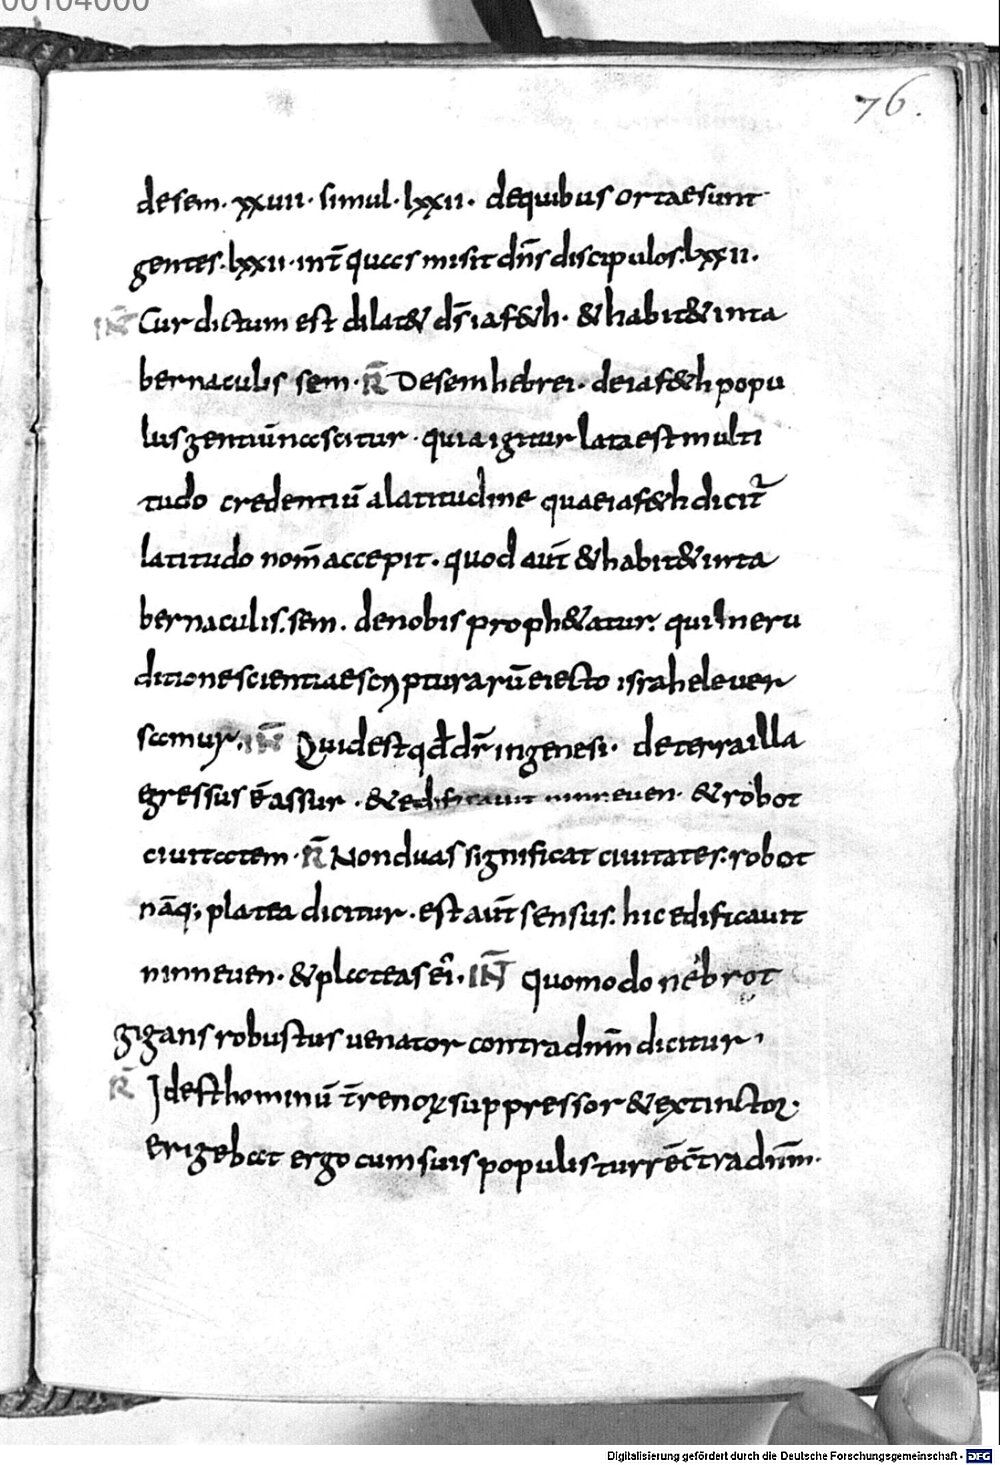 00104000
76.
desem· xxuii· simul· lxxii· dequibus ortaesunt
gentes· lxxii· int̄ quos misit dn̄s discipulos· lxxii·
IÑ Cur dictum est dilat& d̄s iaf&h· & habit& inta
bernaculis sem· R̄ Desem hebrei· deiaf&h popu
lus gentiū noscitur· quia igitur lata est multi
tudo credentiū alatitudine quae iaf&h dicit̄
latitudo nom̄ accepit· quod aut̄ & habit& inta
bernaculis· sem· denobis proph&atur· qui Ineru
ditione scientiae scripturarū eiecto israhele uer
samur· IÑ Quid est qđ dr̄ ingenesi· deterra illa
egressus ē assur· & edificauit ninneuen· & robot
ciuitatem· R̄ Non duas significat ciuitates· robot
nāq; platea dicitur· est aut̄ sensus· hic edificauit
ninneuen· & plateas ei· IÑ quomodo nebrot
gigans robustus uenator contra dnm̄ dicitur·
R̄ Idest hominū t̄renorum suppressor & extinctor·
erigebat ergo cum suis populis turrē c̄tra dnm̄·
Digitalisierung gefördert durch die Deutsche Forschungsgemeinschaft · DFG